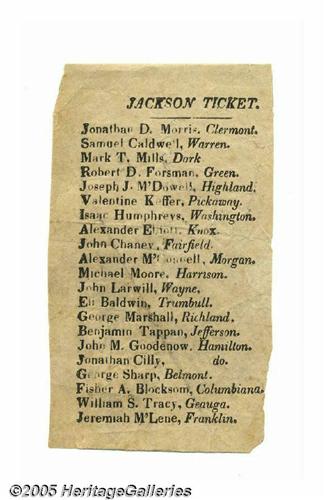 JACKSON TICKET.
Jonathan D. Morris, Clermont.
Samuel Caldwell, Warren.
Mark T. Mills, Dark
Robert D. Forsman, Green.
Joseph J. M'Dowell, Highland.
Valentine Keffer, Pickaway.
Isaac Humphreys, Washington.
Alexander Elliott, Knox.
John Chaney, Fairfield.
Alexander M'Connell, Morgan.
Michael Moore, Harrison.
John Larwill, Wayne,
Eli Baldwin, Trumbull.
George Marshall, Richland.
Benjamin Tappan, Jefferson.
John M. Goodenow, Hamilton.
Jonathan Cilly, do.
George Sharp, Belmont.
Fisher A. Blocksom, Columbiana.
William S. Tracy, Geauga.
Jeremiah M'Lene, Franklin.
©2005 HeritageGalleries